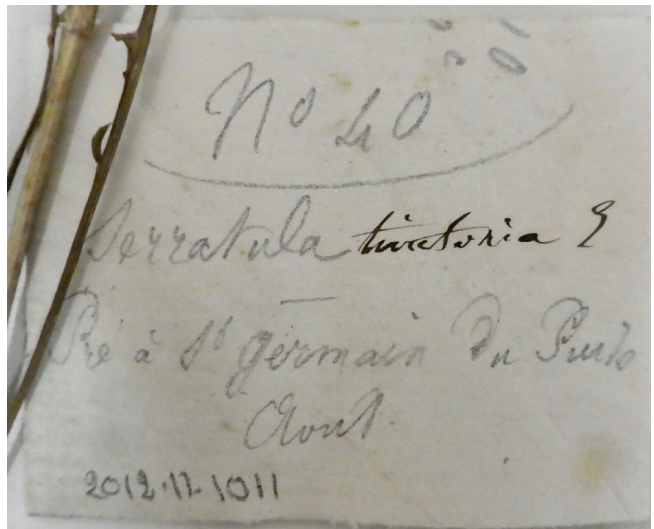 No 40
Serratula tinctoria
Pré à St germain Du Puits
Aout
2012.11.1011